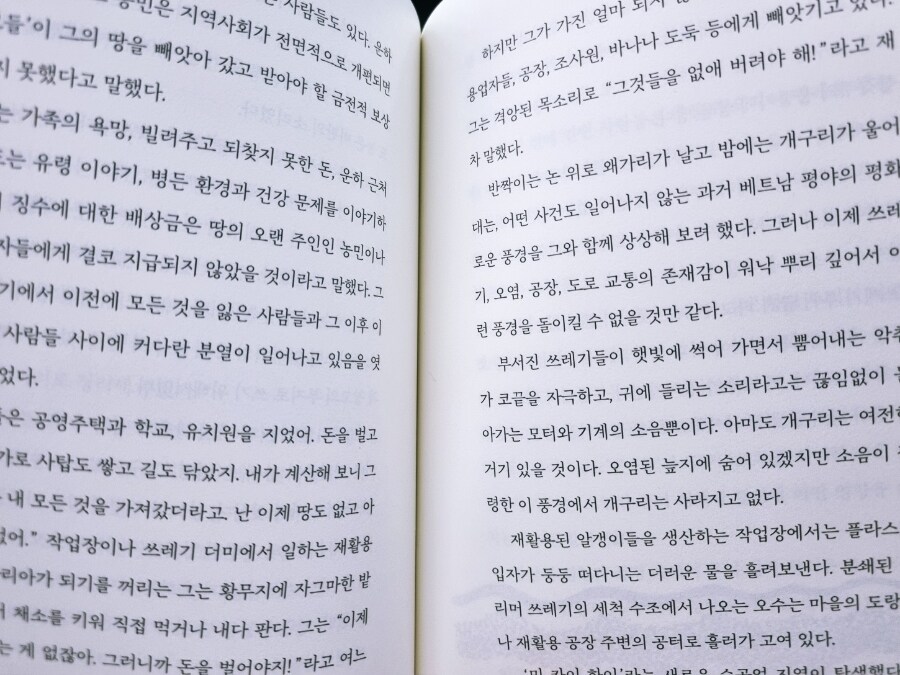 사람들도 있다. 윤하
농민은 지역사회가 전면적으로 개편되면
이 그의 땅을 빼앗아 갔고 받아야 할 금전적 보상
못했다고 말했다.
가족의 욕망, 빌려주고 되찾지 못한 돈, 윤하 근처
유령 이야기, 병든 환경과 건강 문제를 이야기하
징수에 대한 배상금은 땅의 오랜 주인인 농민이나
자들에게 결코 지급되지 않았을 것이라고 말했다. 그
기에서 이전에 모든 것을 잃은 사람들과 그 이후 이
사람들 사이에 커다란 분열이 일어나고 있음을 엿
었다.
은 공영주택과 학교, 유치원을 지었어. 돈을 벌고
가로 사탑도 쌓고 길도 닦았지. 내가 계산해 보니 그
내 모든 것을 가져갔더라고. 난 이제 땅도 없고 아
없어.” 작업장이나 쓰레기 더미에서 일하는 재활용
리아가 되기를 꺼리는 그는 황무지에 자그마한 밭
채소를 키워 직접 먹거나 내다 판다. 그는 “이제
는 게 없잖아. 그러니까 돈을 벌어야지!”라고 여느
하지만 그가 가진 얼마 되지
용업자들, 공장, 조사원, 바나나 도둑 등에게 빼앗기고 있다.
그는 격앙된 목소리로 “그것들을 없애 버려야 해!”라고 재
차 말했다.
반짝이는 논 위로 왜가리가 날고 밤에는 개구리가 울어
대는, 어떤 사건도 일어나지 않는 과거 베트남 평야의 평화
로운 풍경을 그와 함께 상상해 보려 했다. 그러나 이제 쓰레
기, 오염, 공장, 도로 교통의 존재감이 워낙 뿌리 깊어서 이
런 풍경을 돌이킬 수 없을 것만 같다.
부서진 쓰레기들이 햇빛에 썩어 가면서 뿜어내는 악취
가 코끝을 자극하고, 귀에 들리는 소리라고는 끊임없이
아가는 모터와 기계의 소음뿐이다. 아마도 개구리는 여전히
거기 있을 것이다. 오염된 늪지에 숨어 있겠지만 소음이
령한 이 풍경에서 개구리는 사라지고 없다.
재활용된 알갱이들을 생산하는 작업장에서는 플라스
입자가 둥둥 떠다니는 더러운 물을 흘려보낸다. 분쇄된
리머 쓰레기의 세척 수조에서 나오는 오수는 마을의 도랑
나 재활용 공장 주변의 공터로 흘러가 고여 있다.
새로운 수공업 지역이 탄생했다